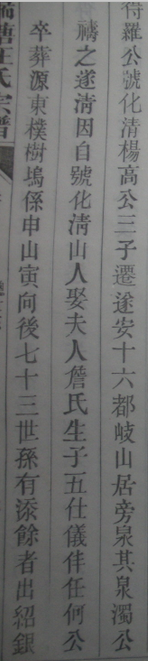 待羅公號化清楊高公三子遷遂安十六都岐山居旁泉其泉濁公
禱之遂清因自號化淸山人娶夫人詹氏生子五仕儀伴任何公
卒葬源東樸樹塢係申山寅向後七十三世孫有添餘者出紹銀
汪氏宗譜